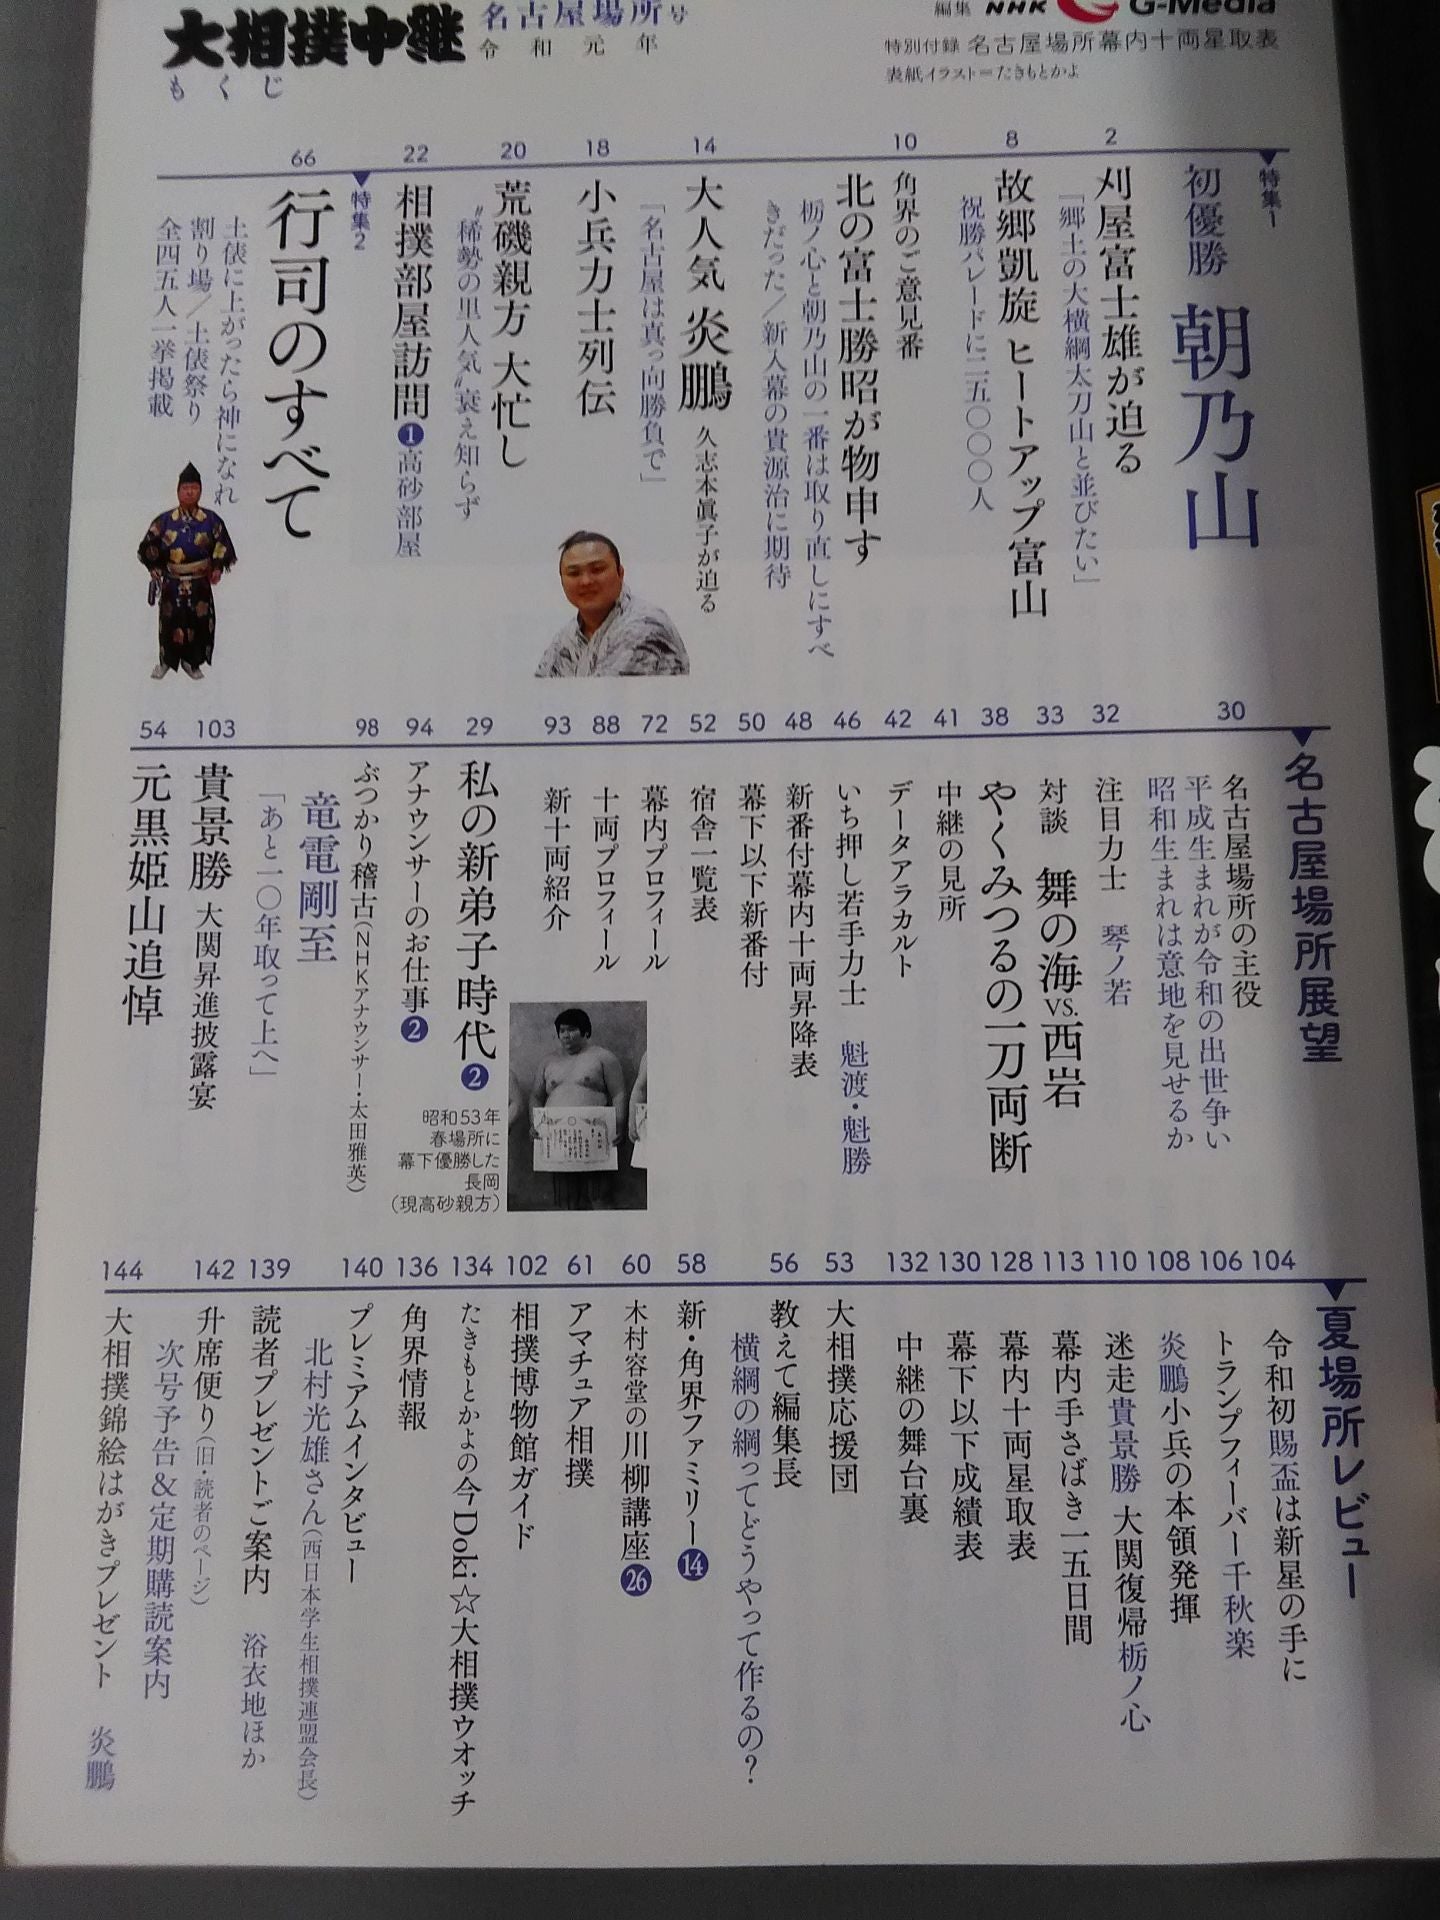 大相撲中継
名古屋場所号
令和元年
もくじ
編集 NHK G-Media
特別付録 名古屋場所幕内十両星取表
表紙イラスト=たきもとかよ
特集1
初優勝 朝乃山
2
刈屋富士雄が迫る
「郷土の大横綱太刀山と並びたい」
8
故郷凱旋 ヒートアップ富山
祝勝パレードに二五〇〇〇人
10
角界のご意見番
北の富士勝昭が物申す
栃ノ心と朝乃山の一番は取り直しにすべ
きだった/新入幕の貴源治に期待
14
大人気 炎鵬 久志本眞子が迫る
「名古屋は真っ向勝負で」
18
小兵力士列伝
20
荒磯親方 大忙し
〝稀勢の里人気〟衰え知らず
22
相撲部屋訪問❶高砂部屋
特集2
66
行司のすべて
土俵に上がったら神になれ
割り場/土俵祭り
全四五人一挙掲載
名古屋場所展望
30
名古屋場所の主役
平成生まれが令和の出世争い
昭和生まれは意地を見せるか
32
注目力士 琴ノ若
33
対談 舞の海VS.西岩
38
やくみつるの一刀両断
41
中継の見所
42
データアラカルト
46
いち押し若手力士 魁渡・魁勝
48
新番付幕内十両昇降表
50
幕下以下新番付
52
宿舎一覧表
72
幕内プロフィール
88
十両プロフィール
93
新十両紹介
29
私の新弟子時代❷
昭和53年
春場所に
幕下優勝した
長岡
(現高砂親方)
94
アナウンサーのお仕事❷
98
ぶつかり稽古(NHKアナウンサー・太田雅英)
竜電剛至
「あと一〇年取って上へ」
103
貴景勝 大関昇進披露宴
54
元黒姫山追悼
夏場所レビュー
104
令和初賜盃は新星の手に
106
トランプフィーバー千秋楽
108
炎鵬小兵の本領発揮
110
迷走貴景勝 大関復帰栃ノ心
113
幕内手さばき一五日間
128
幕内十両星取表
130
幕下以下成績表
132
中継の舞台裏
53
大相撲応援団
56
教えて編集長
横綱の綱ってどうやって作るの?
58
新・角界ファミリー⓮
60
木村容堂の川柳講座㉖
61
アマチュア相撲
102
相撲博物館ガイド
134
たきもとかよの今Doki☆大相撲ウオッチ
136
角界情報
140
プレミアムインタビュー
北村光雄さん(西日本学生相撲連盟会長)
139
読者プレゼントご案内 浴衣地ほか
142
升席便り(旧・読者のページ)
次号予告&定期購読案内
144
大相撲錦絵はがきプレゼント 炎鵬